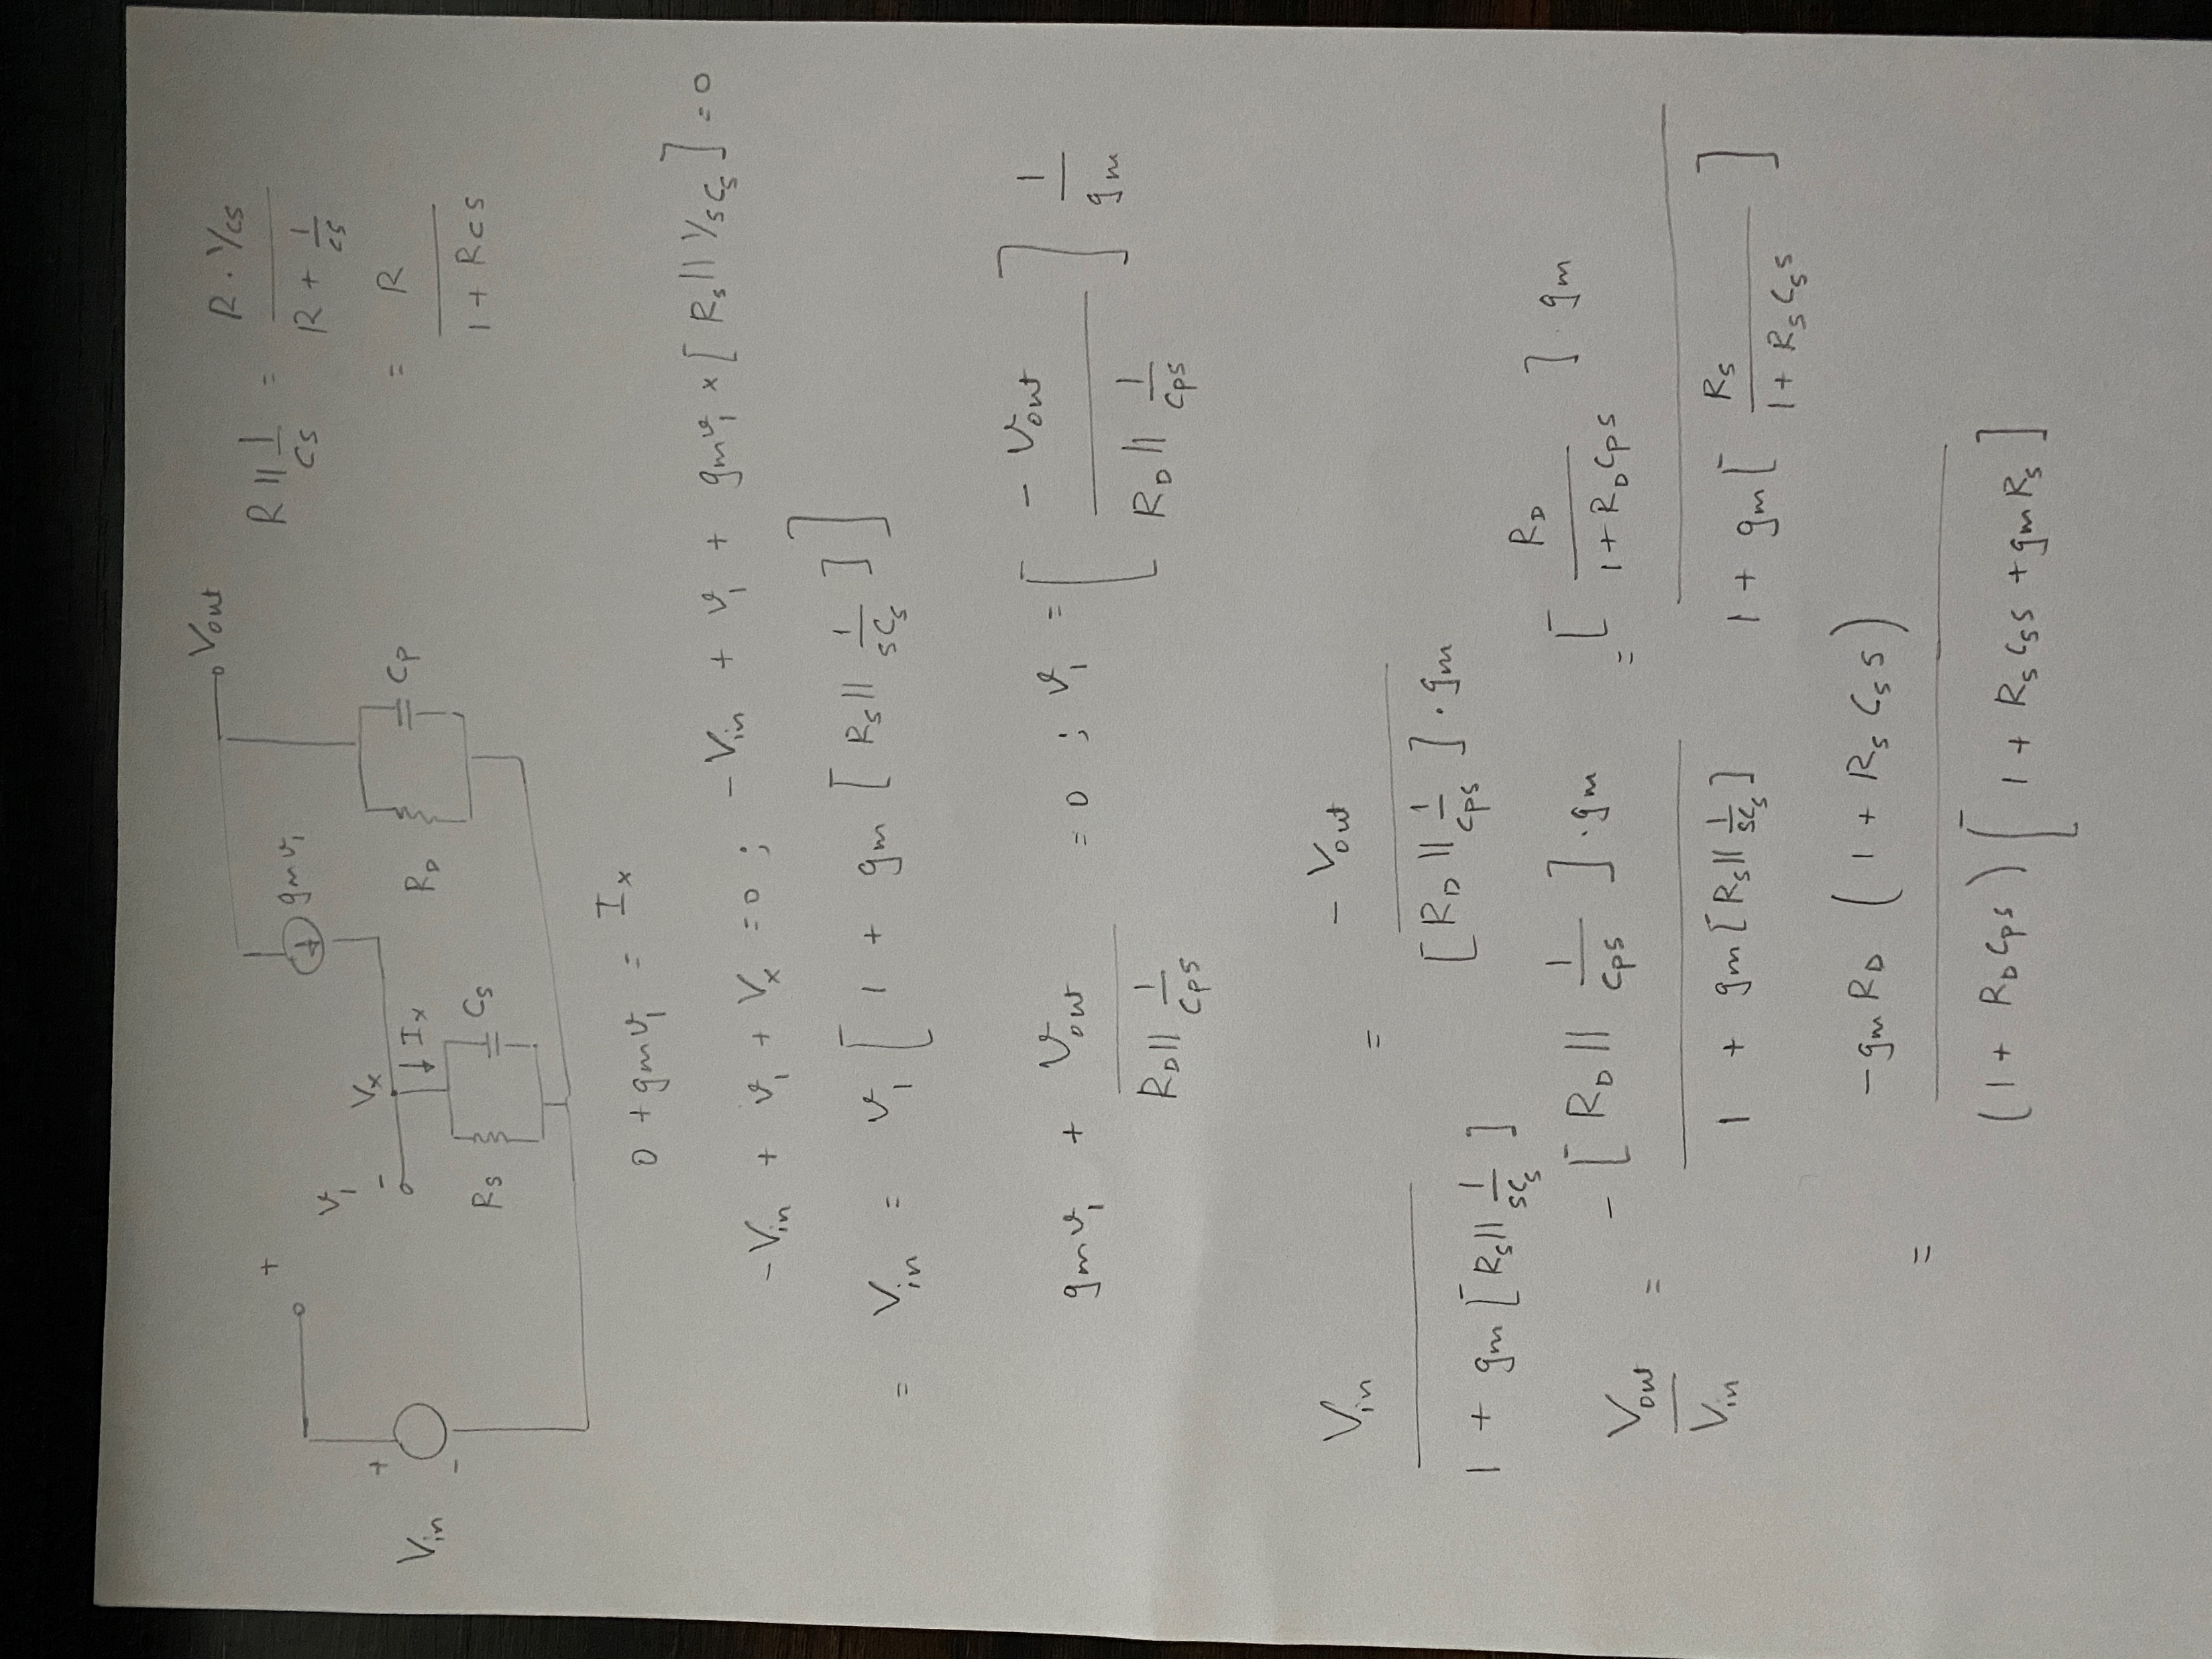 R || 1/cs = (R · 1/cs) / (R + 1/cs)
= R / (1 + Rcs)
Vout
gmv1
RD
Cp
Vx
Ix
Cs
Rs
v1
+
-
+
-
Vin
0 + gmv1 = Ix
-Vin + v1 + Vx = 0 ; -Vin + v1 + gmv1 x [Rs || 1/sCs] = 0
= Vin = v1 [1 + gm [Rs || 1/sCs]]
gmv1 + Vout / (RD || 1/Cps) = 0 ; v1 = [-Vout / (RD || 1/Cps)] 1/gm
Vin / (1 + gm [Rs || 1/sCs]) = -Vout / ([RD || 1/Cps] · gm)
Vout / Vin = -[RD || 1/Cps] · gm / (1 + gm [Rs || 1/sCs]) = [RD / (1 + RDCps)] · gm / (1 + gm [Rs / (1 + RsCss)])
= -gmRD (1 + RsCss) / ((1 + RDCps) [1 + RsCss + gmRs])